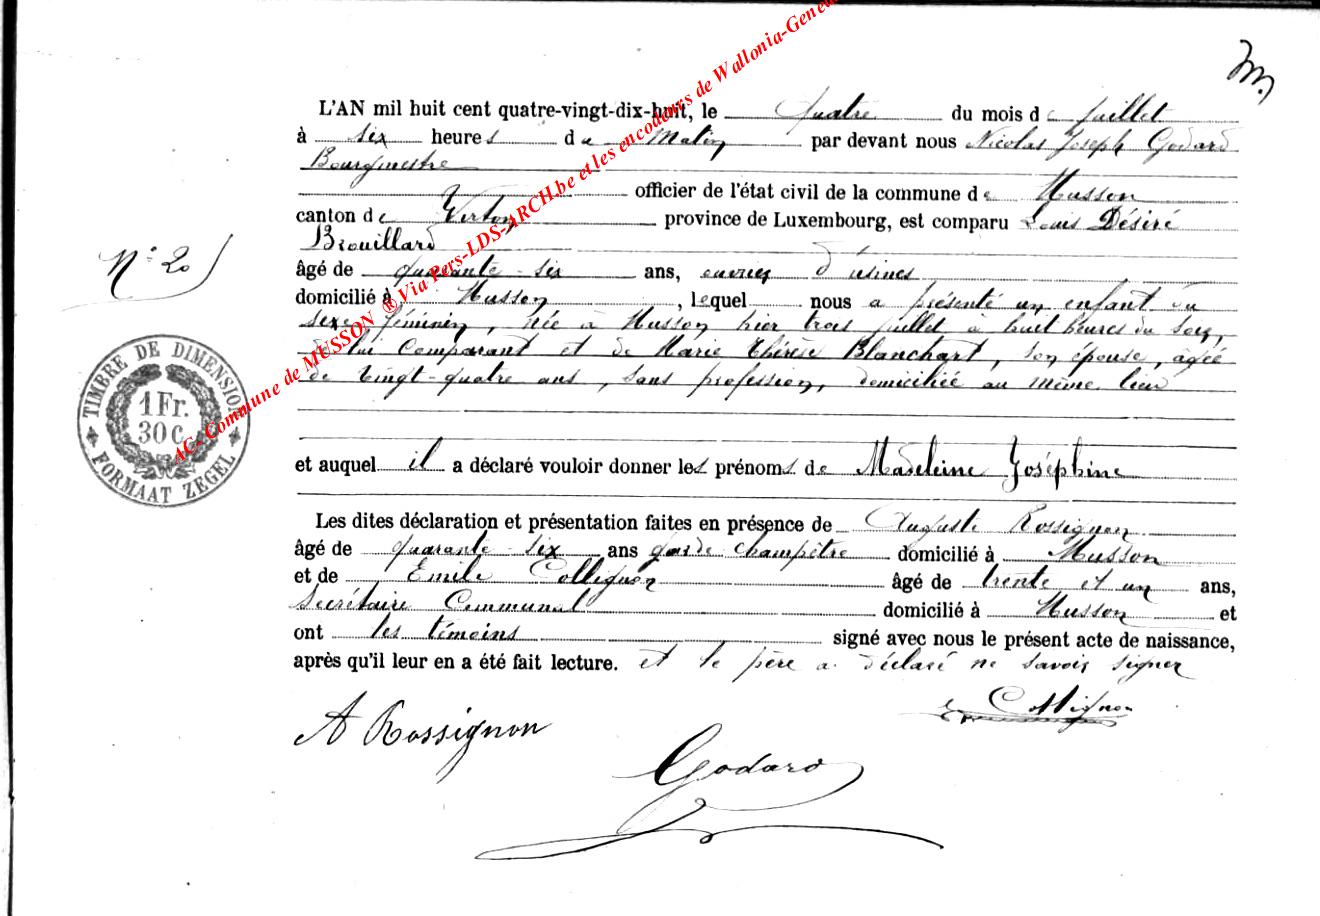 L'AN mil huit cent quatre-vingt-dix-huit, le Quatre du mois de juillet
à six heures du Matin par devant nous Nicolas Joseph Godard
Bourgmestre
officier de l'état civil de la commune de Musson
canton de Virton province de Luxembourg, est comparu Louis Désiré
Brouillard
âgé de quarante-six ans, ouvrier d'usines
domicilié à Musson, lequel nous a présenté un enfant du
sexe féminin, née à Musson hier trois juillet à huit heures du soir,
de lui Comparant et de Marie Thérèse Blanchart, son épouse, âgée
de vingt-quatre ans, sans profession, domiciliée au même lieu
et auquel il a déclaré vouloir donner les prénoms de Madeleine Joséphine
Les dites déclaration et présentation faites en présence de Auguste Rossignon
âgé de quarante-six ans garde champêtre domicilié à Musson
et de Emile Collignon âgé de trente et un ans,
Secrétaire Communal domicilié à Musson et
ont les témoins signé avec nous le présent acte de naissance,
après qu'il leur en a été fait lecture. et le père a déclaré ne savoir signer
Collignon
A Rossignon
Godard
N° 20
TIMBRE DE DIMENSION
1 Fr.
30 C.
FORMAAT ZEGEL
AC- Commune de MUSSON ® Via Pers-LDS-ARCH.be et les encodeurs de Wallonia-Genea